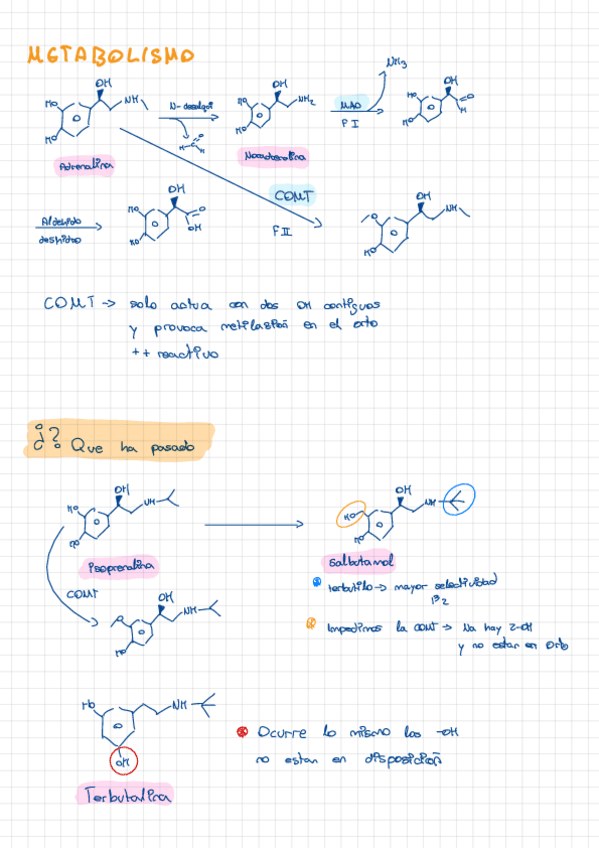 METABOLISMO
NH3
OH
OH
OH
HO
NH
N-desalqui
HO
NH2
MAO
HO
O
HO
H
H
F I
HO
H
HO
Adrenalina
Noradrenalina
OH
COMT
OH
Aldehido
HO
O
O
NH
deshidro
HO
OH
F II
HO
COMT → solo actua con dos OH contiguos
y provoca metilación en el orto
++ reactivo
¿? Que ha pasado
OH
OH
HO
NH
HO
NH
HO
HO
Isoprenalina
Salbutamol
terbutilo → mayor selectividad
β2
COMT
OH
NH
Impedimos la COMT → Na hay 2-OH
y no estar en Orto
O
HO
HO
NH
Ocurre lo mismo los -OH
no estan en disposición
OH
Terbutalina